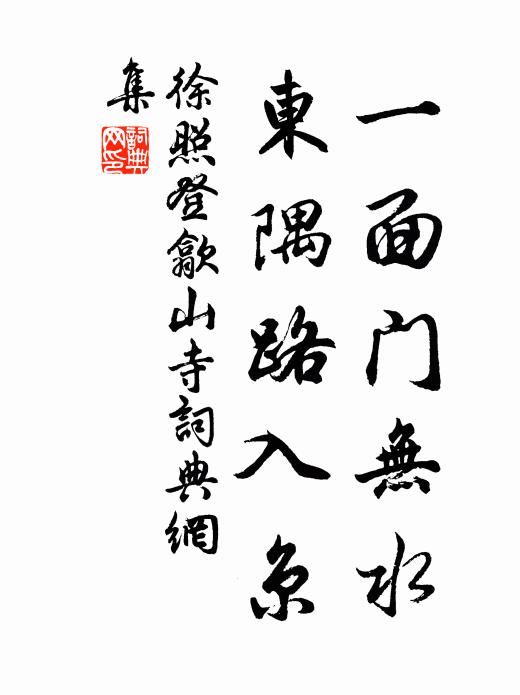 一面門無水
東隅路入京
徐照登歙山寺詞典網
集
詞典网印